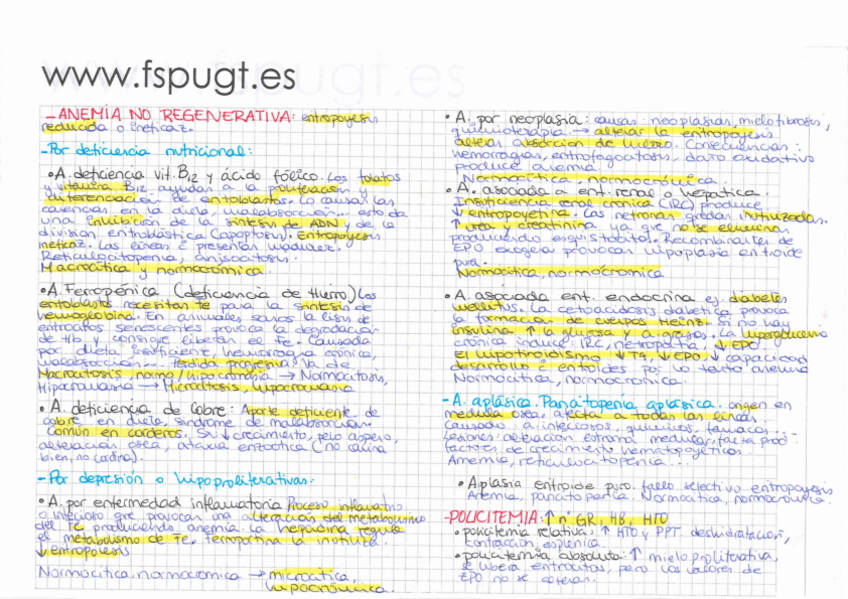 www.fspugt.es
- ANEMIA NO REGENERATIVA: eritropoyesis
reducida o ineficaz.
- Por deficiencia nutricional:
• A. deficiencia vit. B12 y ácido fólico. Los folatos
y vitamina B12 ayudan a la proliferación y
diferenciación de eritroblastos. Lo causan las
carencias en la dieta, malabsorción... esto da
una inhibición de la síntesis de ADN y de la
división eritroblástica (apoptosis). Eritropoyesis
ineficaz. Las líneas e presentan
Reticulocitopenia, anisocitosis.
Macrocítica y normocrómica.
• A. Ferropénica (deficiencia de Hierro) Los
eritoblastos necesitan Fe para la síntesis de
hemoglobina. En animales sanos la lisis de
eritrocitos senescentes provoca la degradación
de Hb y consigue liberar el Fe. Causada
por dieta insuficiente, hemorragia crónica,
malabsorción... Perdida progresiva la de
Macrocitosis, normo/hipocromía → Normocitosis,
Hipocromía → Microcitosis, hipocromía
• A. deficiencia de Cobre: Aporte deficiente de
cobre en dieta, síndrome de malabsorción.
Común en corderos. Su ↓ crecimiento, pelo áspero,
alteración ósea, ataxia enzootica (no camina
bien, no cordina).
- Por depresión o hipoproliferativas:
• A. por enfermedad inflamatoria Proceso inflamatorio
o infeccioso que provocan una alteración del metabolismo
del Fe produciendo anemia. La hepcidina regula
el metabolismo de Fe. Ferroportina la inutiliza.
↓ eritropoiesis
Normocítica, normocrómica → microcítica,
hipocrómica.
• A. por neoplasia: causas: neoplasias, mielofibrosis,
quimioterapia. → alterar la eritropoyesis
altera absorción de hierro. Consecuencias:
hemorragias, eritrofagocitosis, daño oxidativo
produce anemia.
Normocítica, normocrómica.
• A. asociada a enf. renal o hepática.
Insuficiencia renal crónica (IRC) produce
↓ eritropoyetina. Las nefronas quedan inutilizadas.
↑ urea y creatinina ya que no se eliminan
produciendo esquistocitos. Recombinantes de
EPO exógena provocan hipoplasia eritroide
pura.
Normocítica, normocromica
• A. asociada enf. endocrina ej. diabetes
mellitus. La cetoacidosis diabética provoca
la formación de cuerpos Heinz. Si no hay
insulina ↑ la glucosa La hiperglucemia
crónica induce IRC, nefropatía, ↓ EPO.
El hipotiroidismo ↓ T4, ↓ EPO, ↓ capacidad
desarrollo eritoides por lo tanto anemia
Normocítica, normocromica.
- A. aplásica. Pancitopenia aplásica. origen en
medula ósea, afecta a todas las líneas
Causado a infecciosos, quimicos, fármacos...
Lesiones: alteración estromal medular, falta prod
factores de crecimiento hematopoyéticos.
Anemia, reticulocitopenica...
• Aplasia eritroide pura. fallo selectivo eritropoyesis
Anemia, pancitopenica. Normocítica, normocromica.
- POLICITEMIA: ↑ nº GR, HB, HTO
• policitemia relativa: ↑ HTO y PPT. deshidratacion,
contracción esplénica.
• policitemia absoluta: ↑ mieloproliferativa,
se libera eritrocitos, pero los valores de
EPO no se alteran.